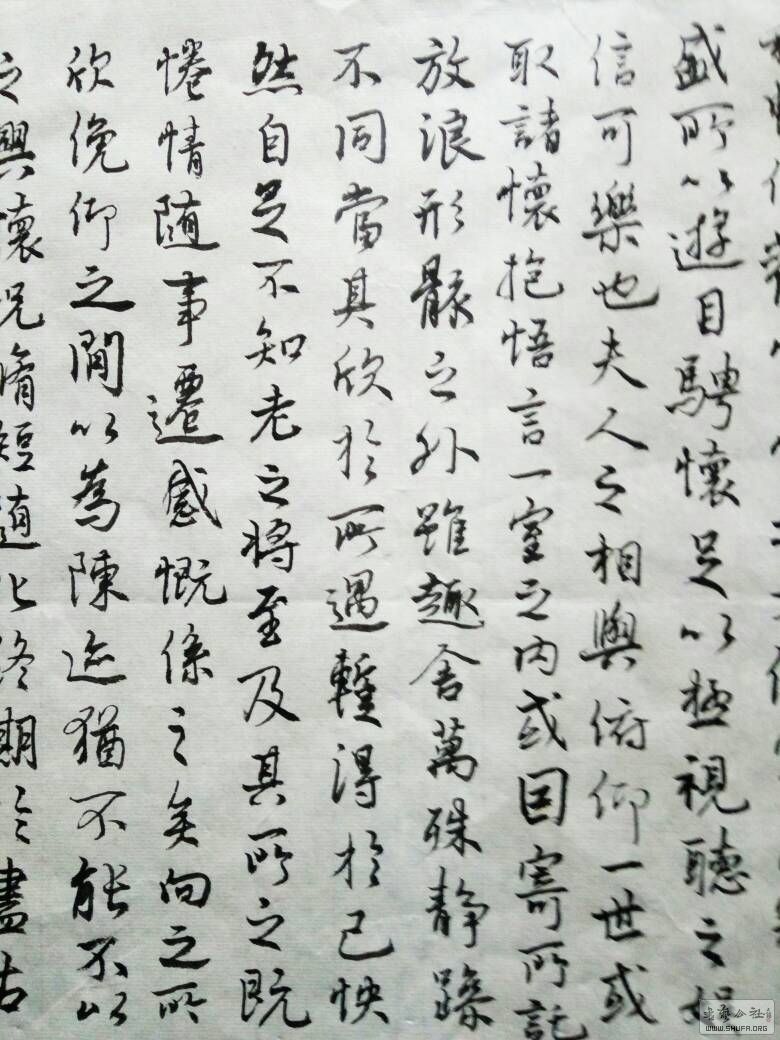 盛所以遊目騁懷足以極視聽之娛
信可樂也夫人之相與俯仰一世或
取諸懷抱悟言一室之內或因寄所託
放浪形骸之外雖趣舍萬殊靜躁
不同當其欣於所遇蹔得於己快
然自足不知老之將至及其所之既
惓情隨事遷感慨係之矣向之所
欣俛仰之間以為陳迹猶不能不以
之興懷況脩短隨化終期於盡古
半藝公社
WWW.SHUFA.ORG